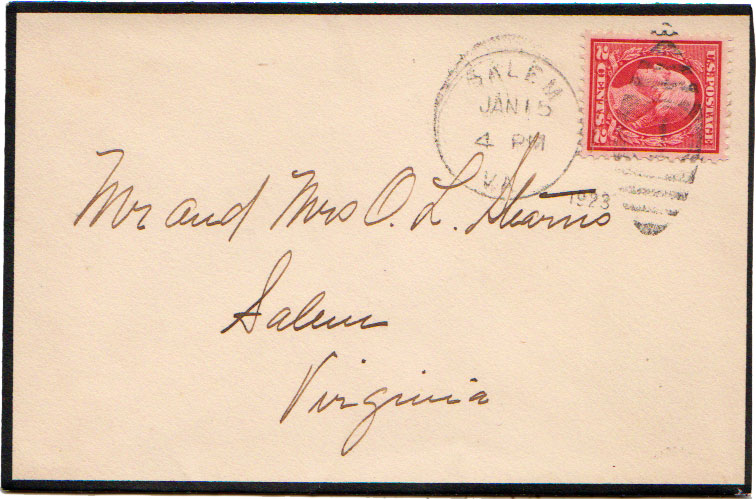 SALEM
JAN 15
4 PM
VA.
1923
U.S. POSTAGE
2 CENTS 2
Mr and Mrs O. L. Stearns
Salem
Virginia